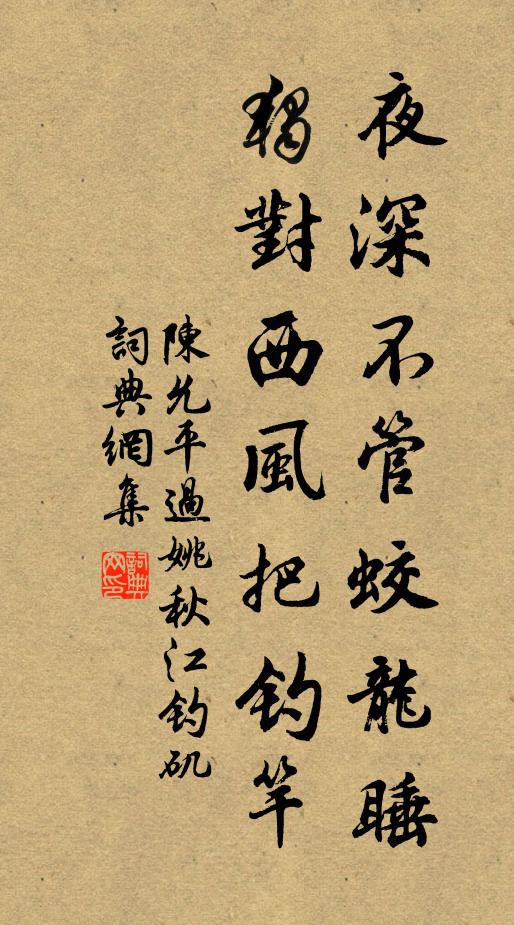 夜深不管蛟龍睡
獨對西風把釣竿
陳允平過姚秋江釣矶
詞典網集
詞典網印